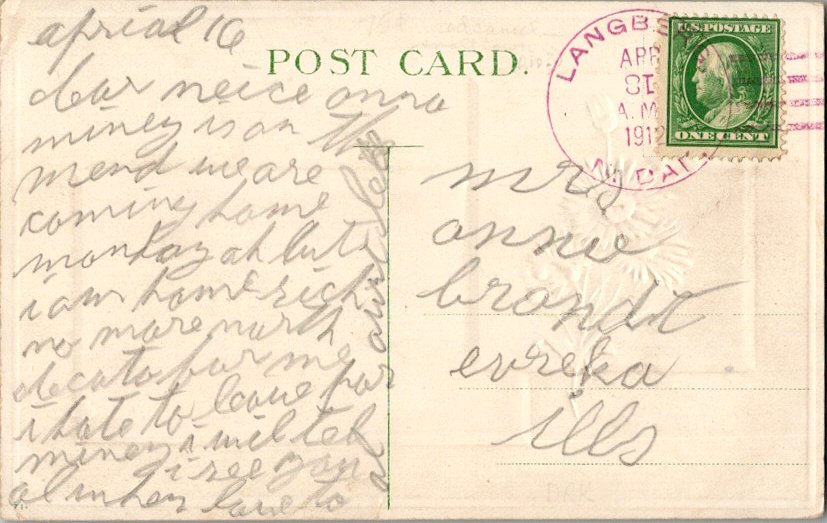 aprial 16
POST CARD.
dear neice anna
miney is on the
mend we are
coming home
monday ah but
i am home sich
no more north
decato for me
i hate to leave for
miney i wil tell
i see you
al when love to
LANGB
APR
A.M.
1912
N. DAK
U.S. POSTAGE
ONE CENT
mrs
annie
brandt
evreka
ills
DAK